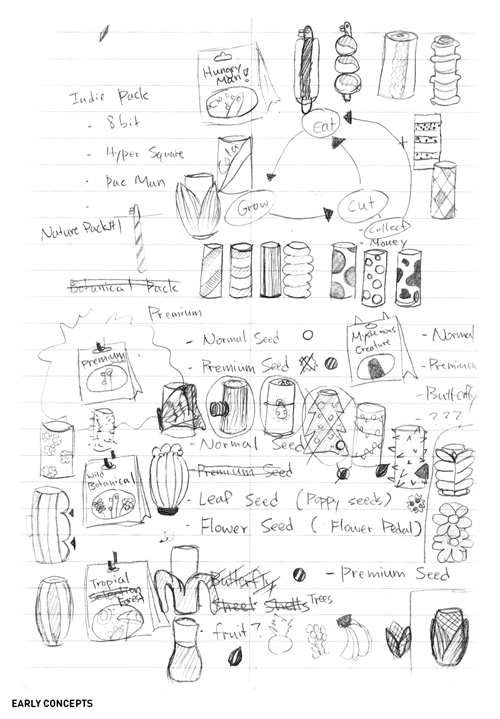 Hungry
Man!
Indie Pack
- 8bit
- Hyper Square
- Pac Man
-
eat
Grow
cut
- Collect
- Money
Nature Pack#1
Botanical Pack
Premium
- Normal Seed
- Premium Seed
Premium
Mysterious
Creature
- Normal
- Premium
- Butterfly
- ???
- Normal Seed
- Premium Seed
Wild
Botanical
- Leaf Seed (Poppy seeds)
- Flower Seed (Flower Pedal)
Tropical
Selection
Forest
Butterfly
- Premium Seed
Street Stalls Trees
- fruit?
EARLY CONCEPTS